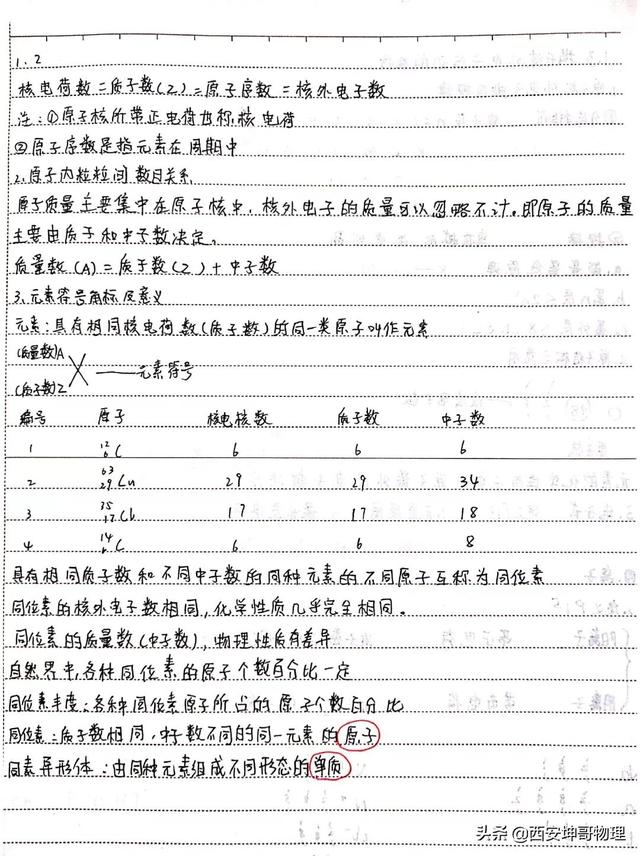 1.2
核电荷数=质子数(Z)=原子序数=核外电子数
注:①原子核所带正电荷也称核电荷
②原子序数是指元素在周期中
2.原子内粒粒间数目关系
原子质量主要集中在原子核中,核外电子的质量可以忽略不计。即原子的质量
主要由质子和中子数决定。
质量数(A)=质子数(Z)+中子数
3.元素符号角标及意义
元素:具有相同核电荷数(质子数)的同一类原子叫作元素
(质量数)A
(质子数)Z
X ——元素符号
编号 原子 核电核数 质子数 中子数
1 ¹²₆C 6 6 6
2 ⁶³₂₉Cu 29 29 34
3 ³⁵₁₇Cl 17 17 18
4 ¹⁴₆C 6 6 8
具有相同质子数和不同中子数的同种元素的不同原子互称为同位素
同位素的核外电子数相同,化学性质几乎完全相同。
同位素的质量数(中子数),物理性质有差异
自然界中,各种同位素的原子个数百分比一定
同位素丰度:各种同位素原子所占的原子个数百分比
同位素:质子数相同,中子数不同的同一元素的原子
同素异形体:由同种元素组成不同形态的单质
头条@西安坤哥物理